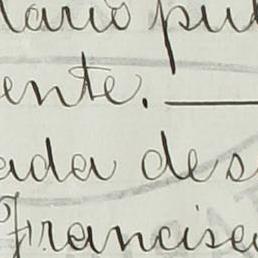 lario pu
ente. —
ada des
Francisc